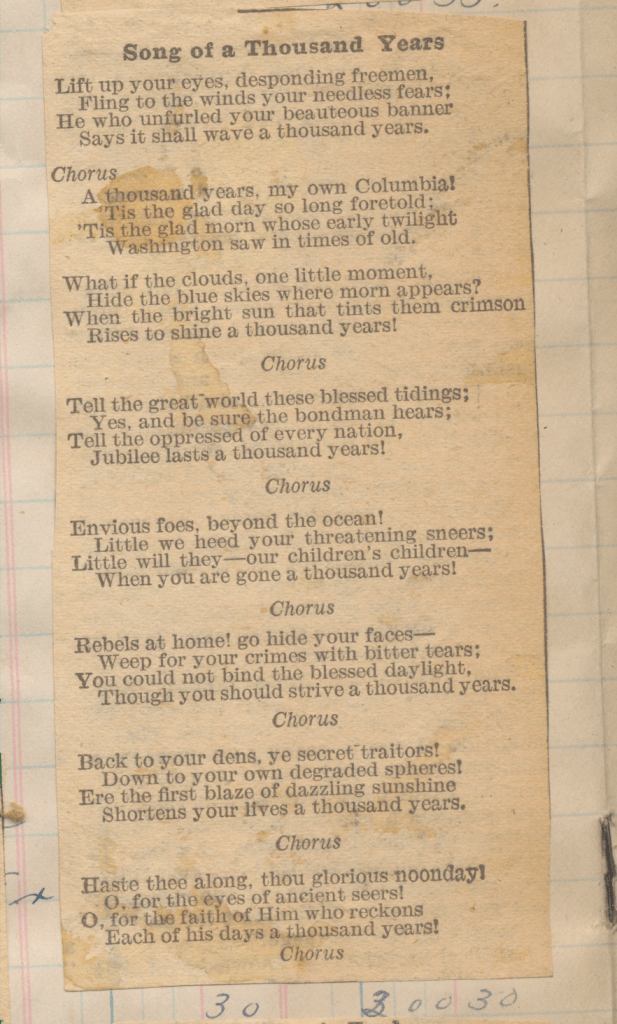 Song of a Thousand Years
Lift up your eyes, desponding freemen,
Fling to the winds your needless fears;
He who unfurled your beauteous banner
Says it shall wave a thousand years.
Chorus
A thousand years, my own Columbia!
'Tis the glad day so long foretold;
'Tis the glad morn whose early twilight
Washington saw in times of old.
What if the clouds, one little moment,
Hide the blue skies where morn appears?
When the bright sun that tints them crimson
Rises to shine a thousand years!
Chorus
Tell the great world these blessed tidings;
Yes, and be sure the bondman hears;
Tell the oppressed of every nation,
Jubilee lasts a thousand years!
Chorus
Envious foes, beyond the ocean!
Little we heed your threatening sneers;
Little will they—our children's children—
When you are gone a thousand years!
Chorus
Rebels at home! go hide your faces—
Weep for your crimes with bitter tears;
You could not bind the blessed daylight,
Though you should strive a thousand years.
Chorus
Back to your dens, ye secret traitors!
Down to your own degraded spheres!
Ere the first blaze of dazzling sunshine
Shortens your lives a thousand years.
Chorus
Haste thee along, thou glorious noonday!
O, for the eyes of ancient seers!
O, for the faith of Him who reckons
Each of his days a thousand years!
Chorus
30 20030